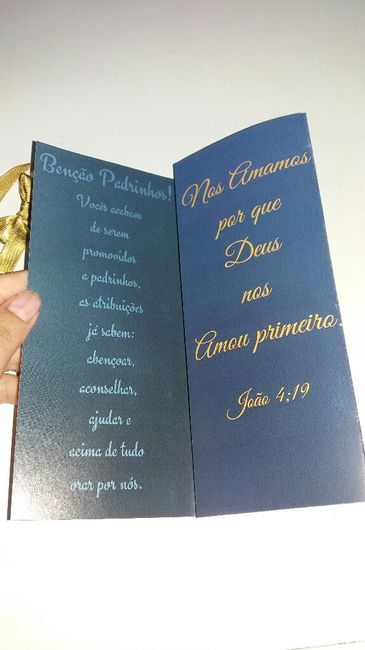 Benção Padrinhos!
Vocês acabam
de serem
promovidos
a padrinhos,
as atribuições
já sabem:
abençoar,
aconselhar,
ajudar e
acima de tudo
orar por nós.
Nos Amamos
por que
Deus
nos
Amou primeiro!
João 4;19